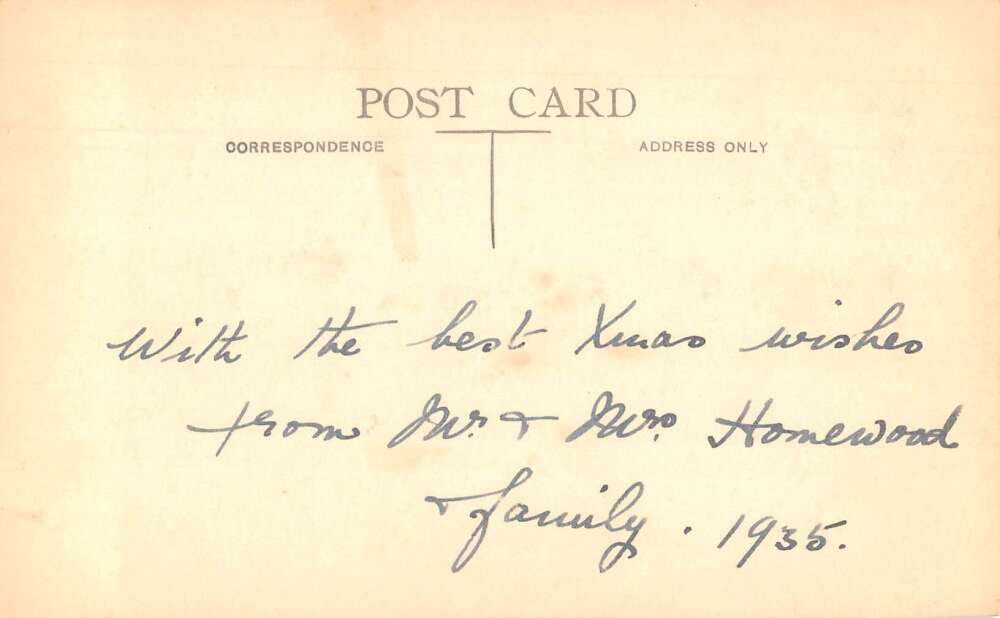 POST CARD
CORRESPONDENCE
ADDRESS ONLY
With the best Xmas wishes
from Mr. & Mrs. Homewood
& family. 1935.